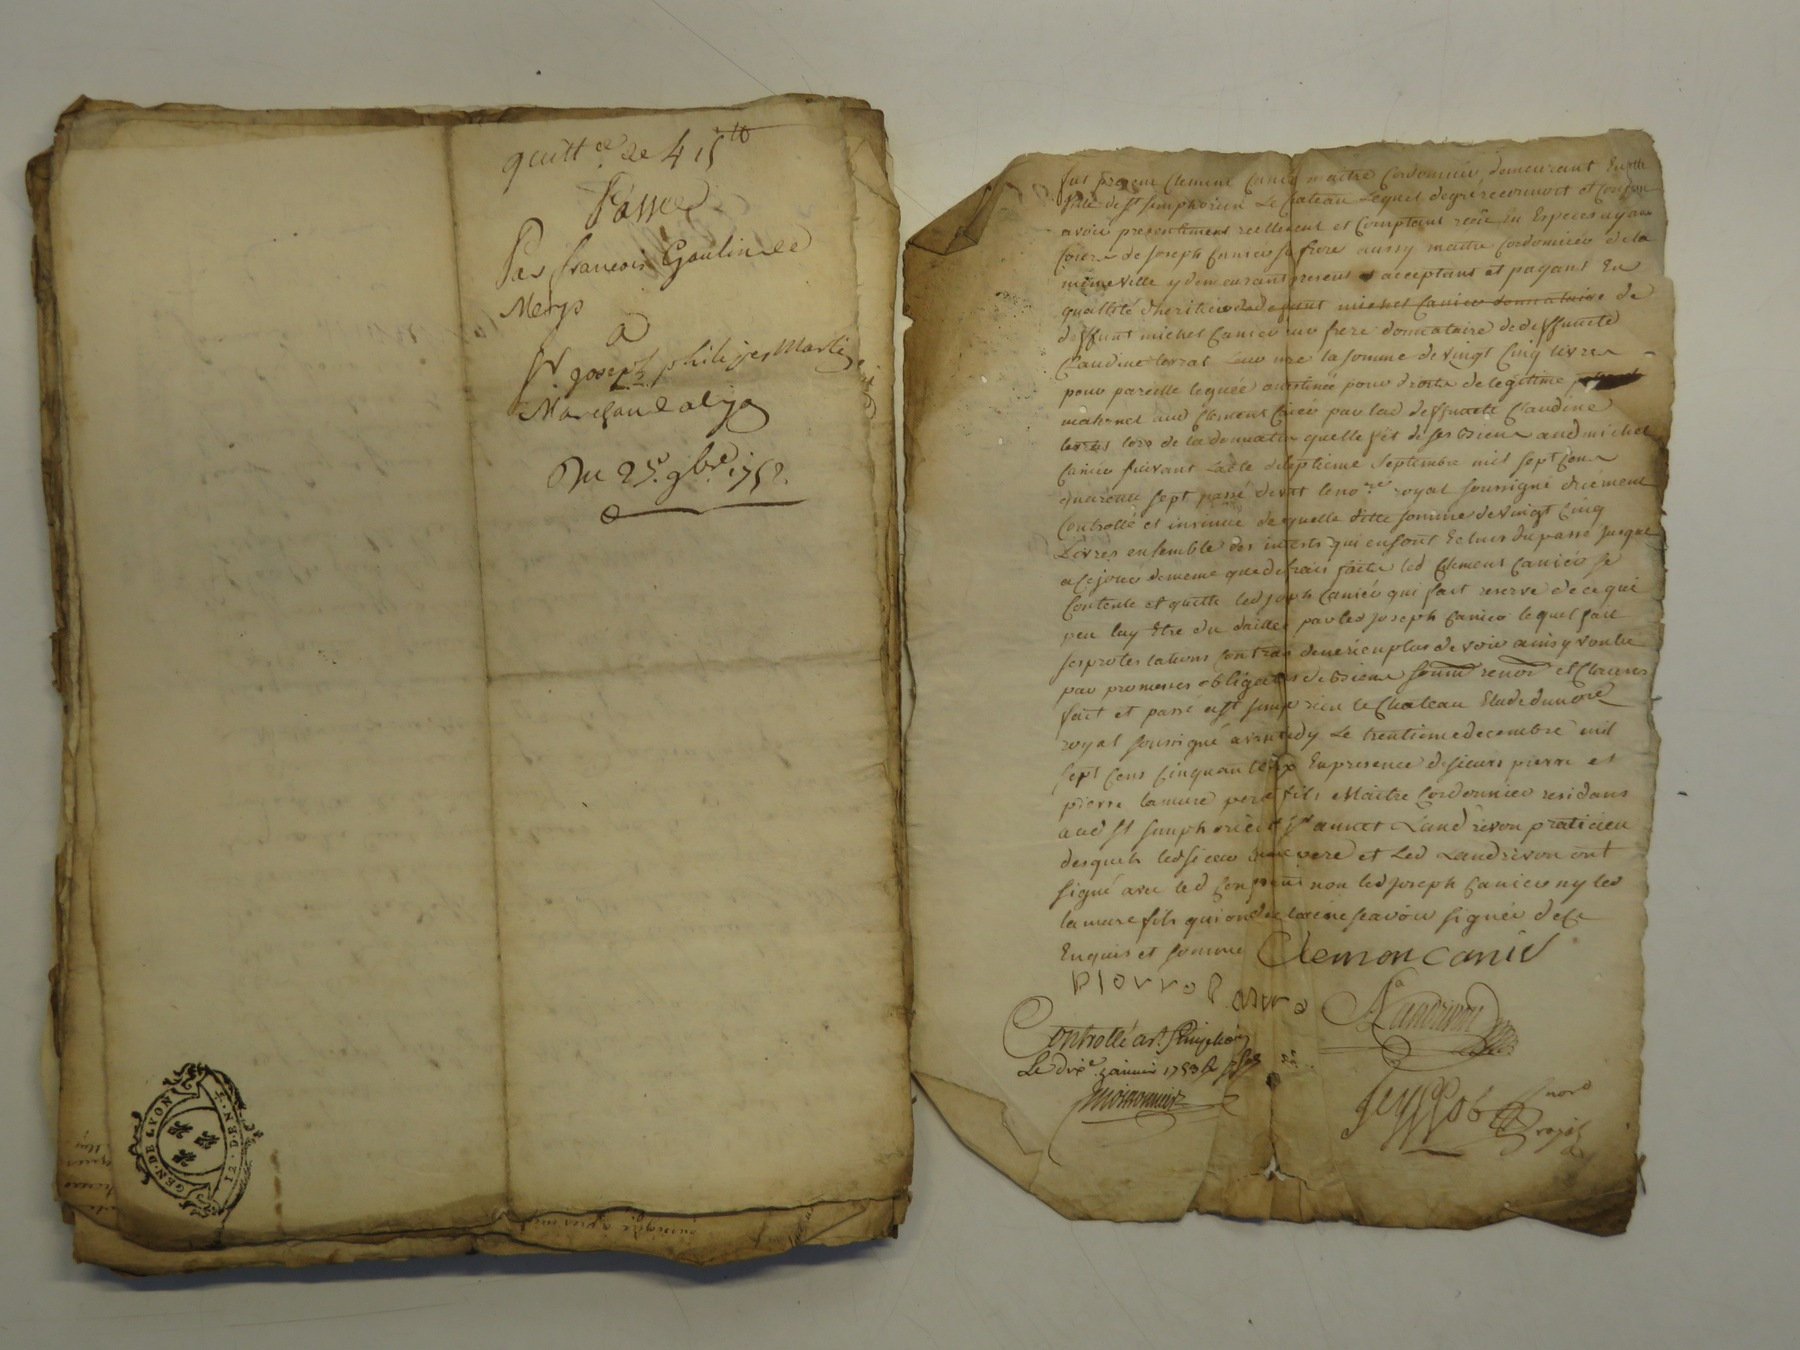 quitt ce de 415 lt
Passée
Par francois Goulin de
Merys
A
Sr. joseph philipes Marti
Marchand a lyo
Du 25e. 9bre. 1752.
GEN. DE LYON
12. DEN.
fut present Clement Canier maitre Cordonnier demeurant En cette
Ville de st simphorien Le Chateau Lequel de gré reconnoit et Confesse
avoir presentement reellement et Comptant reçu En Especes ayant
Cours de Joseph Canier Sr frere aussy maitre Cordonnier de la
même Ville y demeurant present acceptant et payant En
quallité dheritier de defunt michel Canier donnataire de
deffunt michel Canier leur frere donnataire de deffuncte
Claudine terrat leur mere la somme de Vingt Cinq livres
pour pareille leguée destinée pour droits de legitime
maternel aud Clement Canier par lad deffuncte Claudine
terrat lors de la donnation quelle fit de ses biens aud michel
Canier suivant Lacte du septieme Septembre mil sept Cens
quarente sept passé devant le nore royal soussigné duement
Controllé et insinué de quelle ditte somme de Vingt Cinq
Livres ensemble des interets qui en sont Echus du passé Jusque
a Ce jour de meme que de frais faits led Clement Canier se
Contente et quitte led joseph Canier qui fait reserve de ce qui
peu luy Etre du dailleur par led joseph Canier lequel fait
ses protestations Contraires de ne rien plus devoir ainsy Voulu
par promesses obligation de biens soum renon et Clauses
fait et passé a st simphorien le Chateau Etude du nore
royal soussigné avant midy Le trentieme decembre mil
sept Cens Cinquante deux En presence de sieurs pierre et
pierre lamure pere fils Maitre Cordonnier residans
aud st simphorien et Sr annet Landrivon praticien
desquels led sieur lamure pere et Led Landrivon ont
signé avec led Clement non led joseph Canier ny led
lamure fils qui ont declaré ne scavoir signer de Ce
Enquis et sommé Clemon Canie
pierre Lamura
A Landrivon
Controllé a st Simphorien
Le dixe. janvier 1753
nore
royal